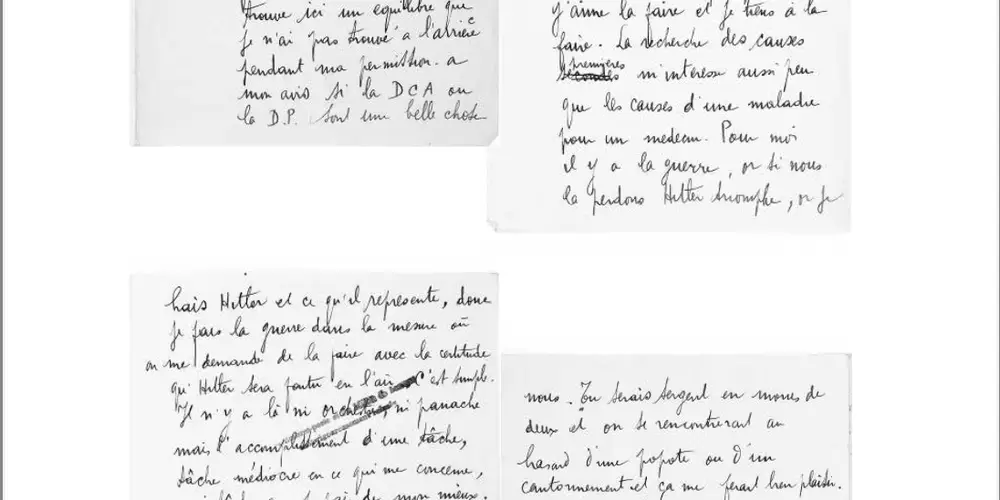 trouve ici un equilibre que
je n'ai pas trouvé a l'arrière
pendant ma permission. a
mon avis si la DCA ou
la D.P. sont une belle chose
j'aime la faire et je tiens à la
faire. La recherche des causes
premières
secondes m'interesse aussi peu
que les causes d'une maladie
pour un medecin. Pour moi
il y a la guerre, or si nous
la perdons Hitler triomphe, or je
hais Hitler et ce qu'il represente, donc
je fais la guerre dans la mesure où
on me demande de la faire avec la certitude
qu'Hitler sera foutu en l'air c'est simple.
Il n'y a là ni orchestre, ni panache
mais l'accomplissement d'une tâche,
tâche médiocre en ce qui me concerne,
de mon mieux.
nous. Tu serais sergent en moins de
deux et on se rencontrerait au
hasard d'une popote ou d'un
cantonnement et ça me ferait bien plaisir.